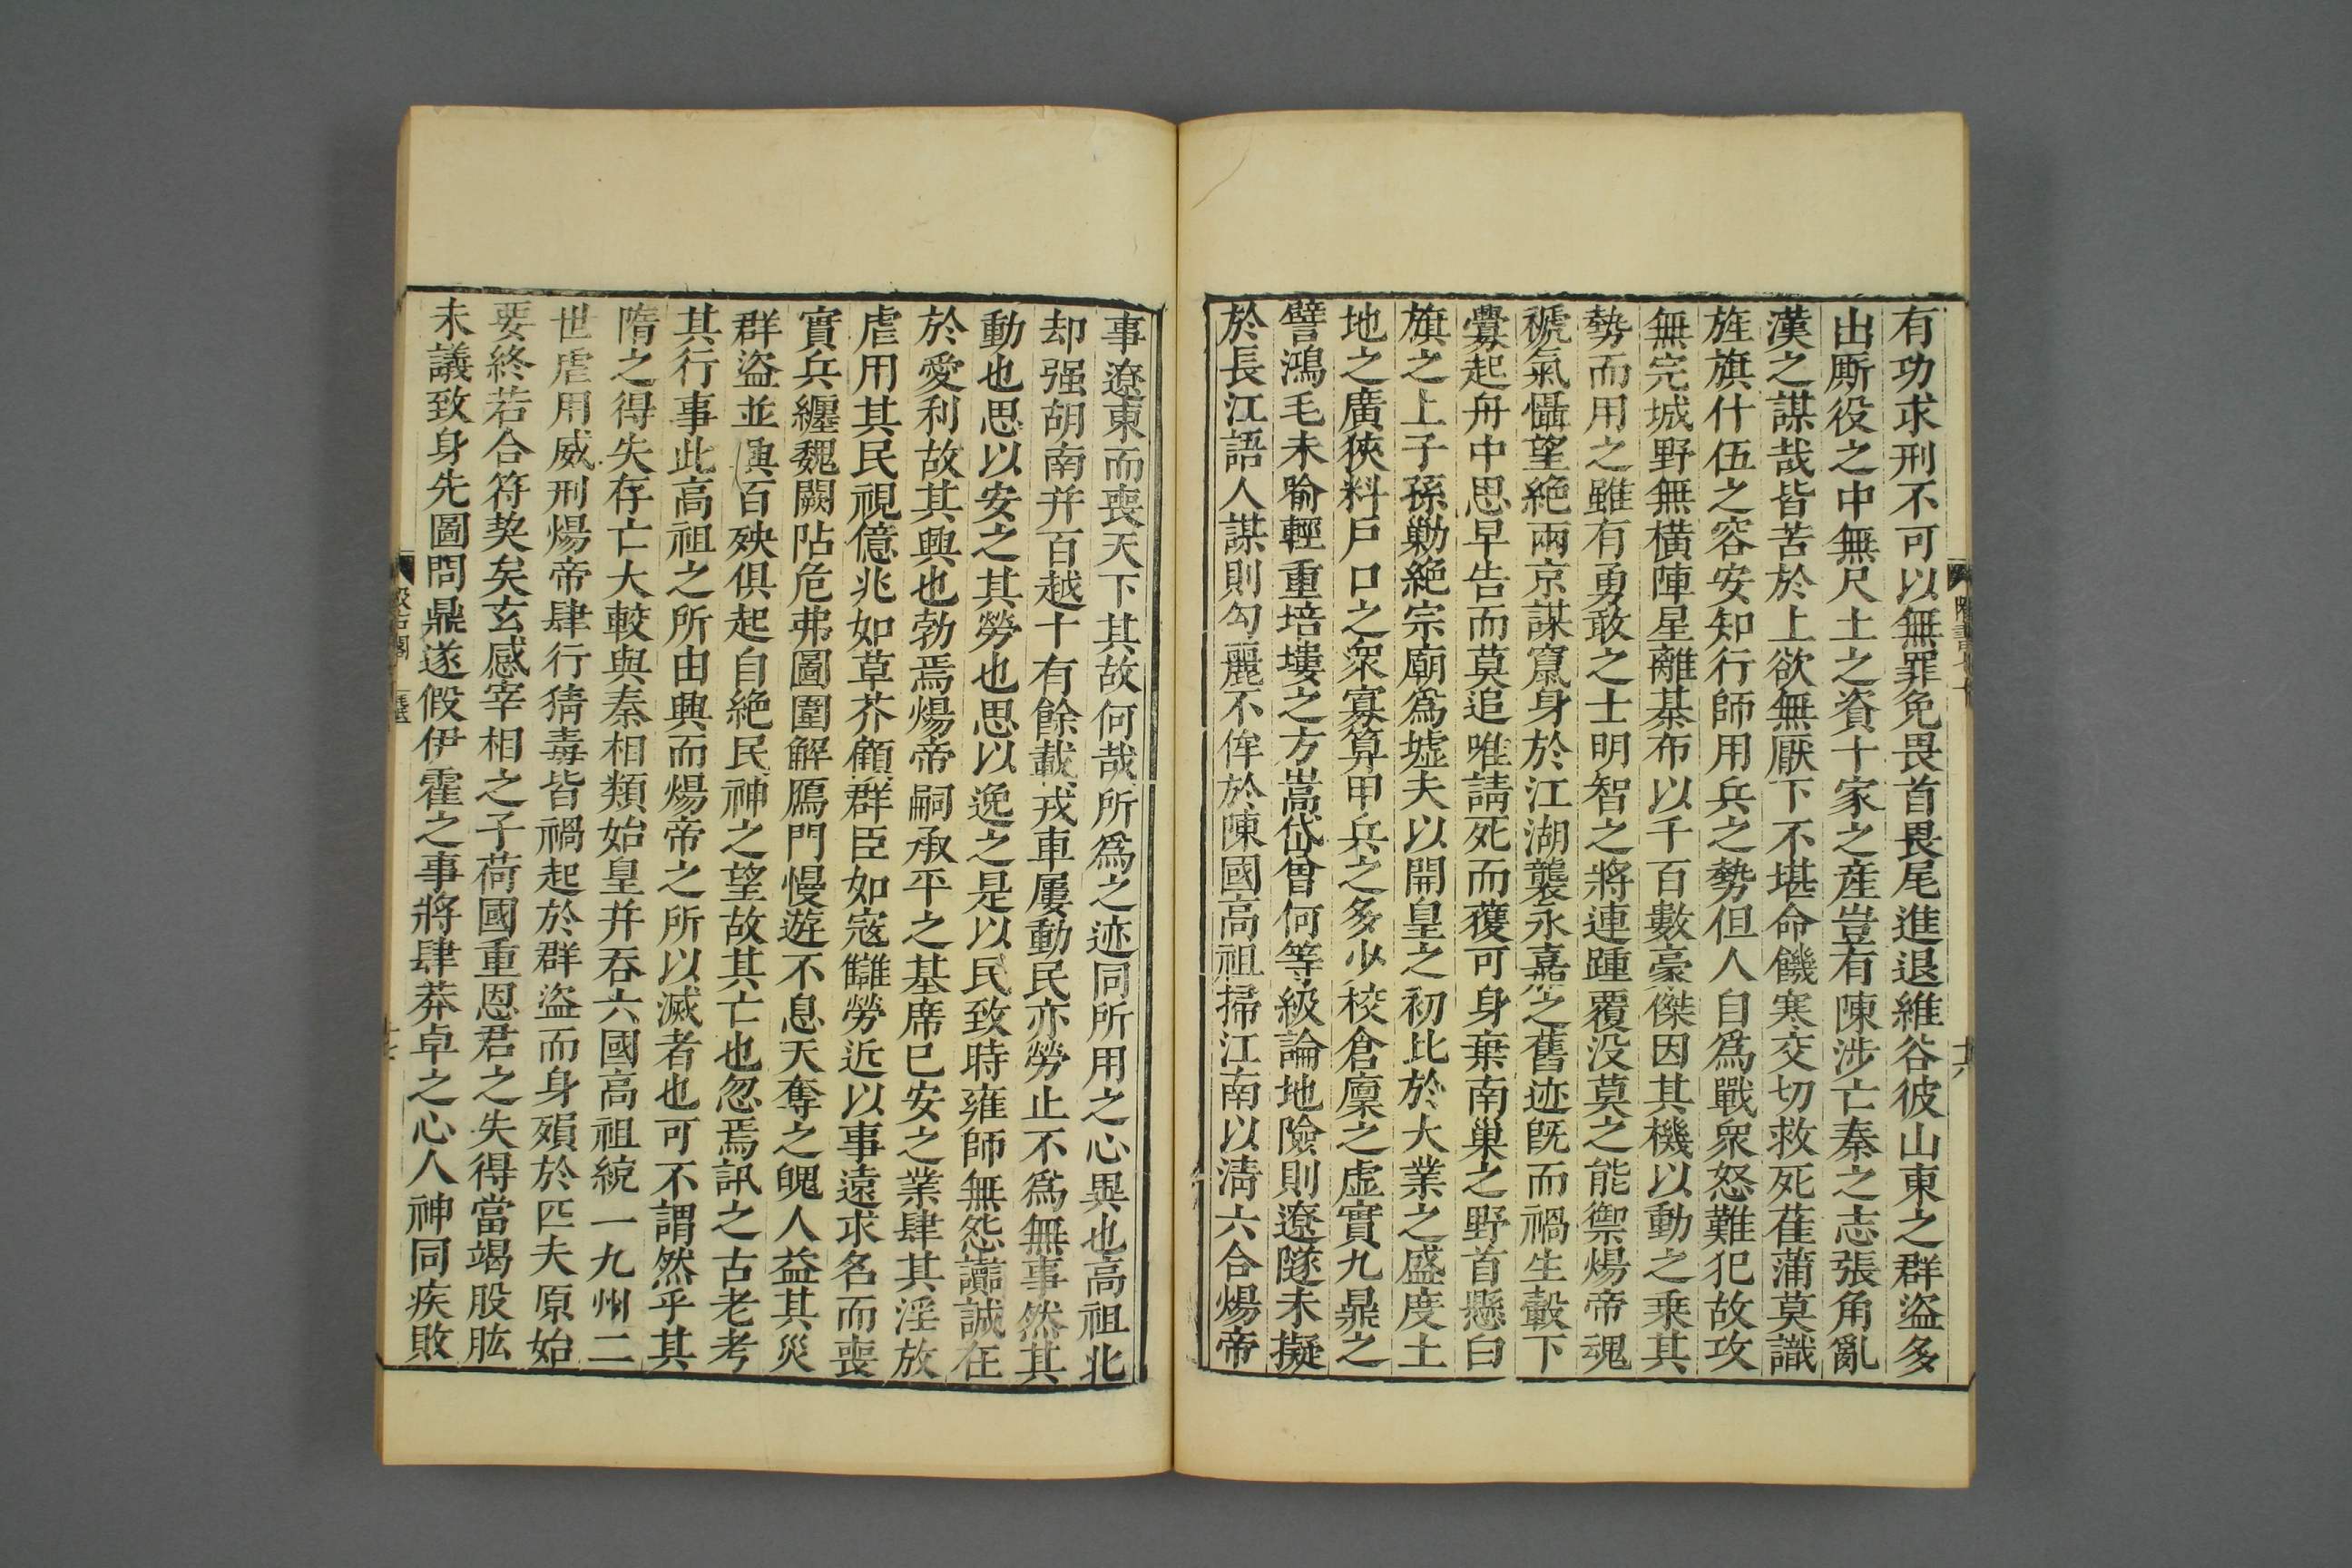 有功求刑不可以無罪免畏首畏尾進退維谷彼山東之群盗多
出厮役之中無尺土之資十家之產豈有陳涉亡秦之志張角亂
漢之謀哉皆苦於上欲無厭下不堪命饑寒交切救死萑蒲莫識
旌旗什伍之容安知行師用兵之勢但人自爲戰衆怒難犯故攻
無完城野無橫陣星離棊布以千百數豪傑因其機以動之乘其
勢而用之雖有勇敢之士明智之將連踵覆没莫之能禦煬帝魂
褫氣懾望絶兩京謀竄身於江湖襲永嘉之舊迹旣而禍生轂下
釁起舟中思早告而莫追唯請死而獲可身棄南巢之野首懸白
旗之上子孫勦絶宗廟爲墟夫以開皇之初比於大業之盛度土
地之廣狹料戸口之衆寡算甲兵之多少校倉廩之虛實九鼎之
譬鴻毛未喻輕重培塿之方嵩岱曾何等級論地險則遼隧未擬
於長江語人謀則勾麗不侔於陳國高祖掃江南以淸六合煬帝
事遼東而喪天下其故何哉所爲之迹同所用之心異也高祖北
却强胡南并百越十有餘載戎車屢動民亦勞止不爲無事然其
動也思以安之其勞也思以逸之是以民致時雍師無怨讟誠在
於愛利故其興也勃焉煬帝嗣承平之基席已安之業肆其淫放
虐用其民視億兆如草芥顧群臣如寇讎勞近以事遠求名而喪
實兵纏魏闕阽危弗圖圍解鴈門慢遊不息天奪之魄人益其災
群盗並興百殃俱起自絶民神之望故其亡也忽焉訊之古老考
其行事此高祖之所由興而煬帝之所以滅者也可不謂然乎其
隋之得失存亡大較與秦相類始皇并吞六國高祖統一九州二
世虐用威刑煬帝肆行猜毒皆禍起於群盗而身殞於匹夫原始
要終若合符契矣玄感宰相之子荷國重恩君之失得當竭股肱
未議致身先圖問鼎遂假伊霍之事將肆莽卓之心人神同疾敗